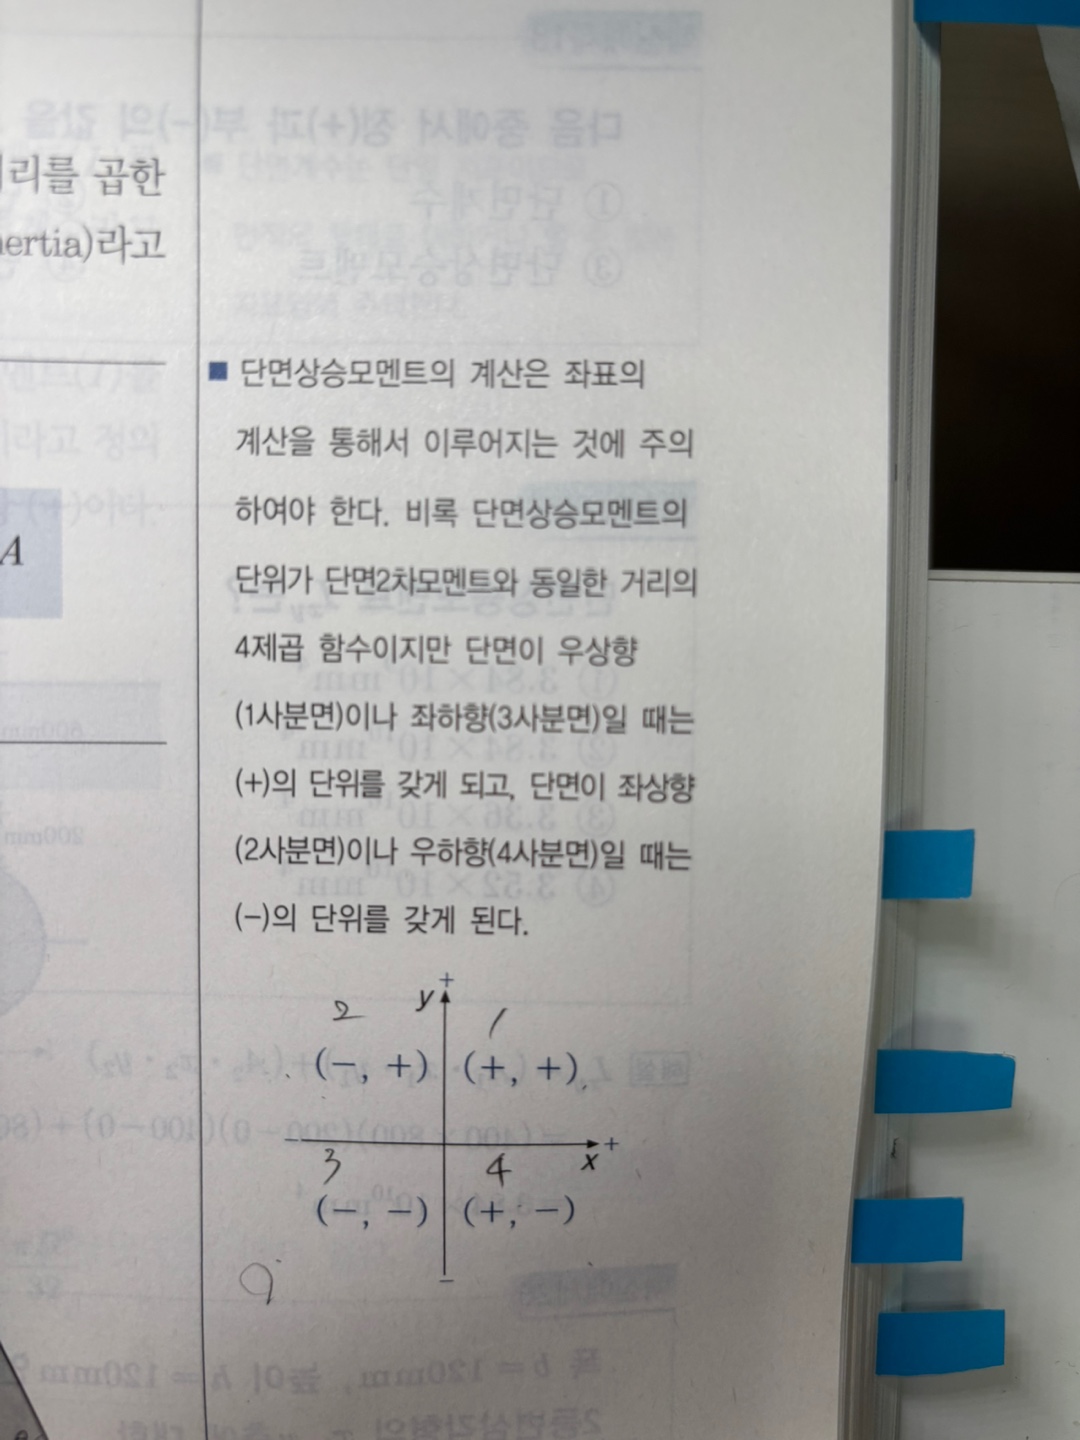 리를 곱한
nertia)라고
A
■ 단면상승모멘트의 계산은 좌표의
계산을 통해서 이루어지는 것에 주의
하여야 한다. 비록 단면상승모멘트의
단위가 단면2차모멘트와 동일한 거리의
4제곱 함수이지만 단면이 우상향
(1사분면)이나 좌하향(3사분면)일 때는
(+)의 단위를 갖게 되고, 단면이 좌상향
(2사분면)이나 우하향(4사분면)일 때는
(−)의 단위를 갖게 된다.
+
y
2 1
(−, +) (+, +)
x +
3 4
(−, −) (+, −)
−